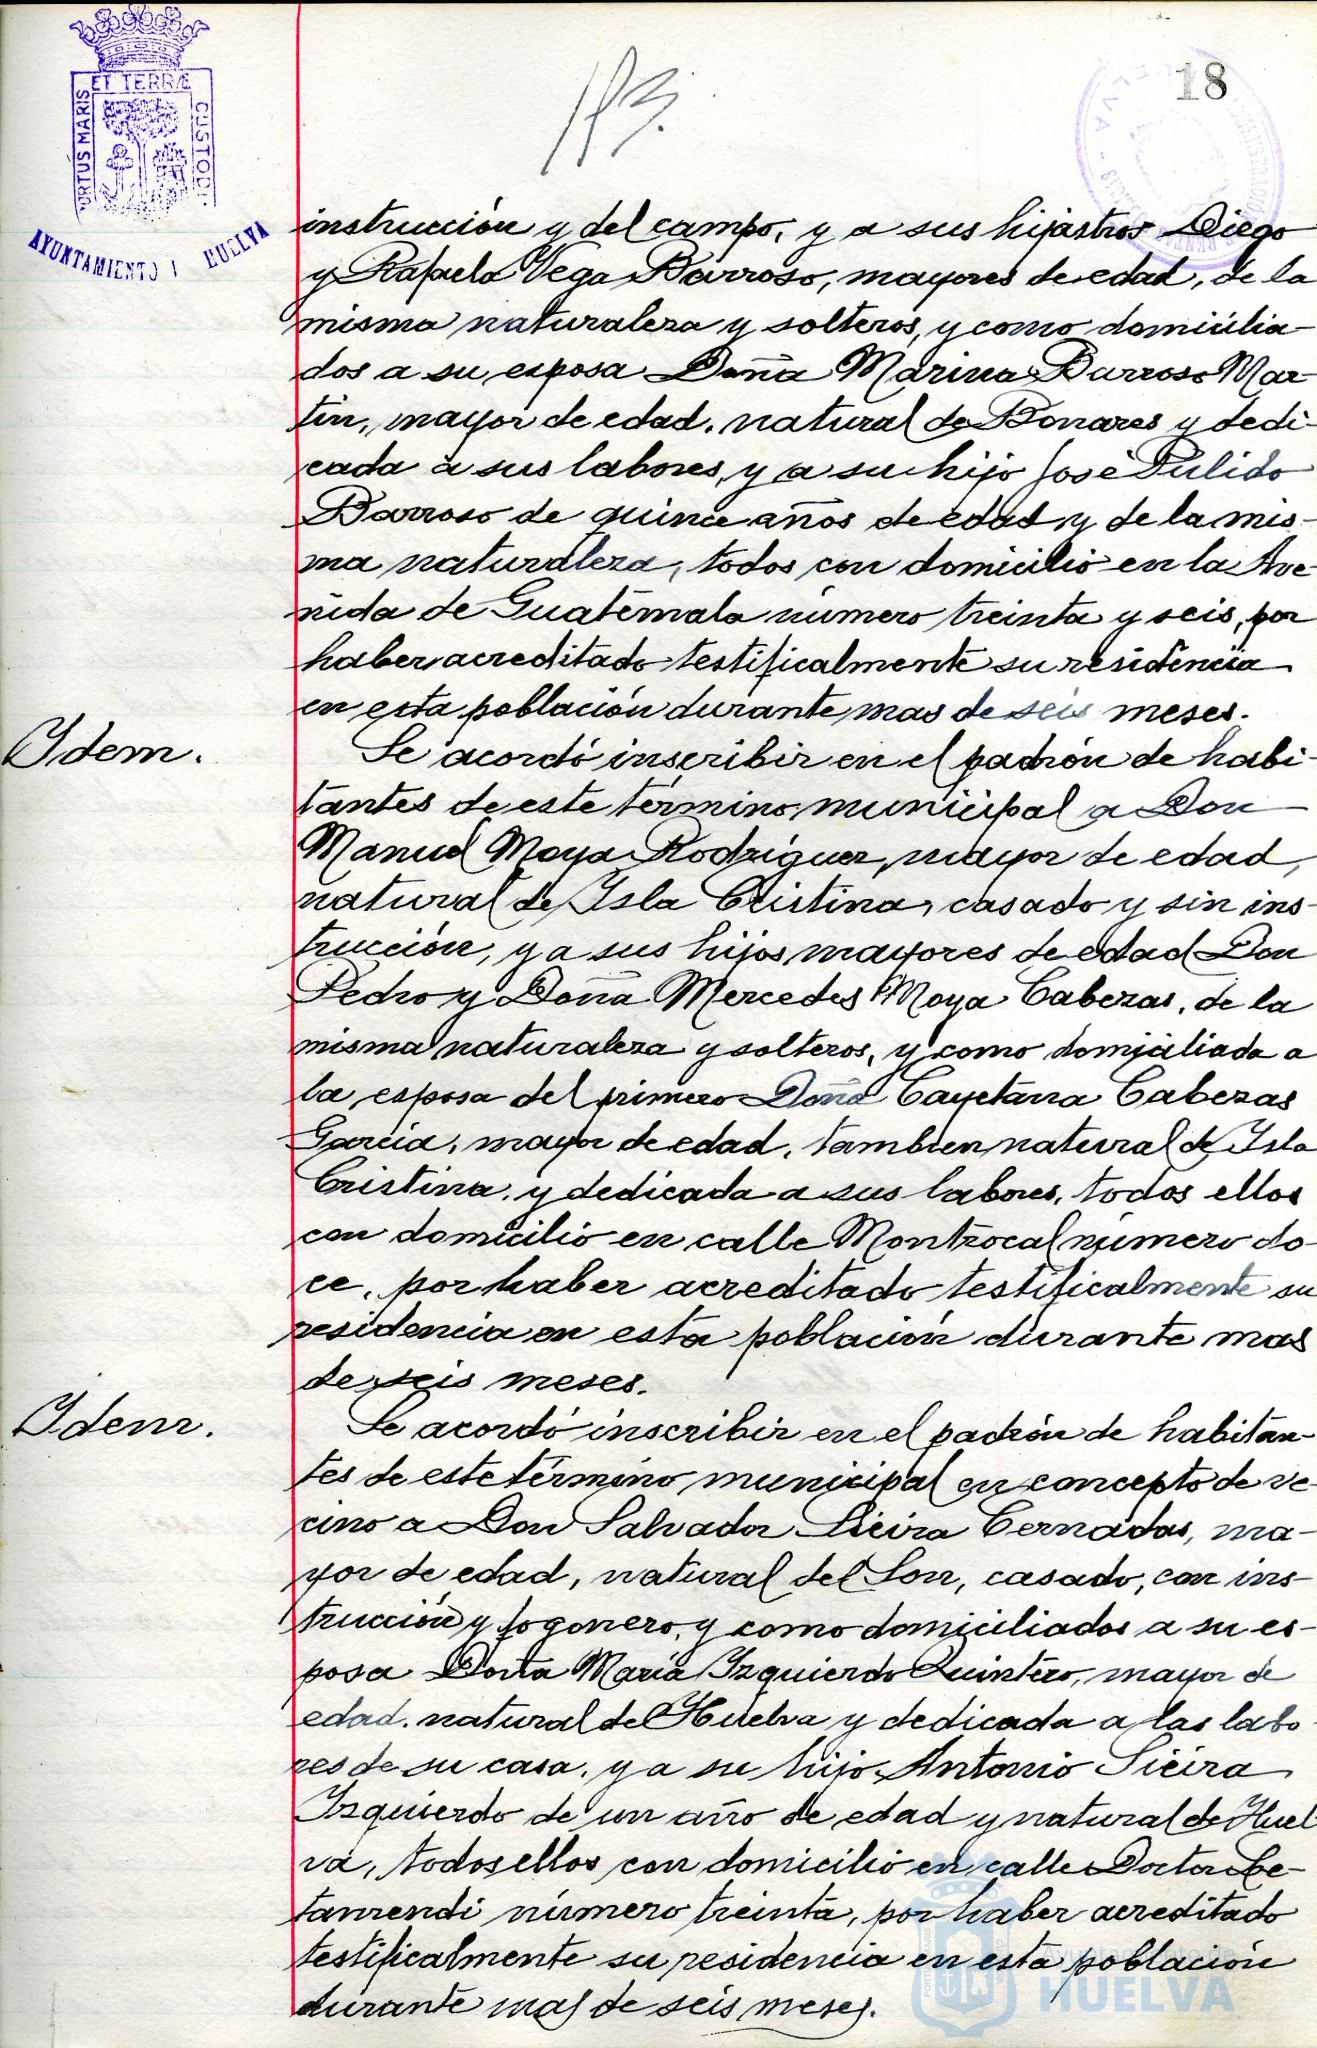 18
113.
PORTUS MARIS ET TERRÆ CUSTODI
AYUNTAMIENTO HUELVA
instrucción y del campo, y a sus hijastros Diego
y Rafaela Vega Barroso, mayores de edad, de la
misma naturaleza y solteros, y como domicilia-
dos a su esposa Doña Marina Barroso Mar-
tín, mayor de edad, natural de Bonares y dedi-
cada a sus labores, y a su hijo José Pulido
Barroso de quince años de edad y de la mis-
ma naturaleza, todos con domicilio en la Ave-
nida de Guatemala número treinta y seis, por
haber acreditado testificalmente su residencia
en esta población durante mas de seis meses.
Idem.
Se acordó inscribir en el padrón de habi-
tantes de este término municipal a Don
Manuel Moya Rodríguez, mayor de edad,
natural de Isla Cristina, casado y sin ins-
trucción, y a sus hijos mayores de edad Don
Pedro y Doña Mercedes Moya Cabezas, de la
misma naturaleza y solteros, y como domiciliada a
la esposa del primero Doña Cayetana Cabezas
García, mayor de edad, tambien natural de Isla
Cristina, y dedicada a sus labores, todos ellos
con domicilio en calle Montrocal número do-
ce, por haber acreditado testificalmente su
residencia en esta población durante mas
de seis meses.
Idem.
Se acordó inscribir en el padrón de habitan-
tes de este término municipal en concepto de ve-
cino a Don Salvador Sieira Cernadas, ma-
yor de edad, natural del Son, casado, con ins-
trucción y fogonero, y como domiciliados a su es-
posa Doña María Izquierdo Quintero, mayor de
edad, natural de Huelva y dedicada a las labo-
res de su casa, y a su hijo Antonio Sieira
Izquierdo de un año de edad y natural de Huel-
va, todos ellos con domicilio en calle Doctor Ce-
tanrendi número treinta, por haber acreditado
testificalmente su residencia en esta población
durante mas de seis meses.
Ayuntamiento de
HUELVA